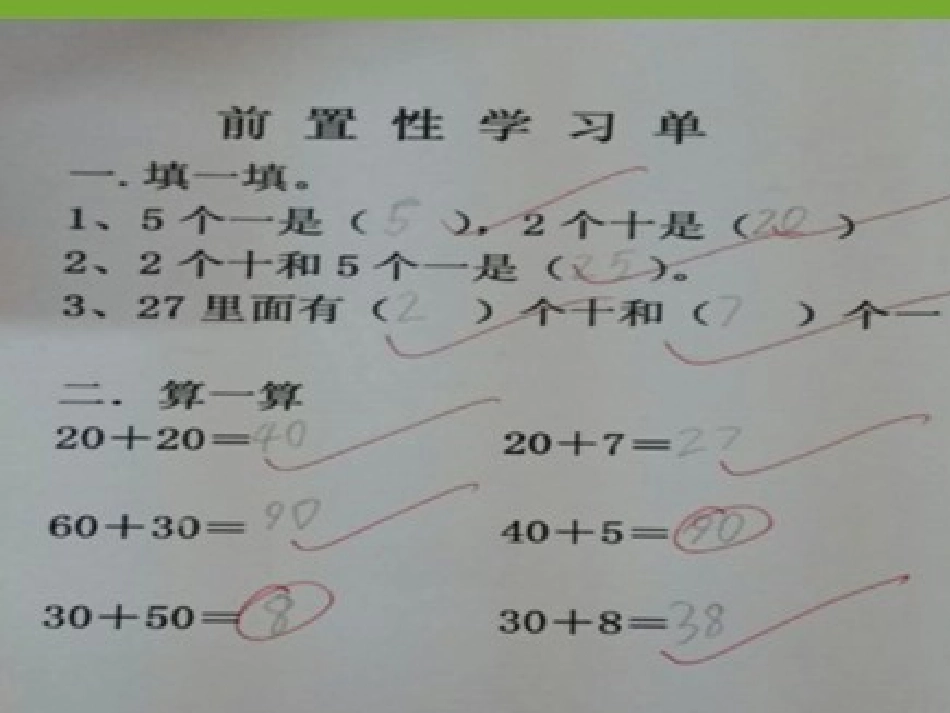 前置性学习单
一.填一填。
1、5个一是（5）。2个十是（20）
2、2个十和5个一是（25）。
3、27里面有（2）个十和（7）个一
二.算一算
20＋20＝40 20＋7＝27
60＋30＝90 40＋5＝90
30＋50＝8 30＋8＝38